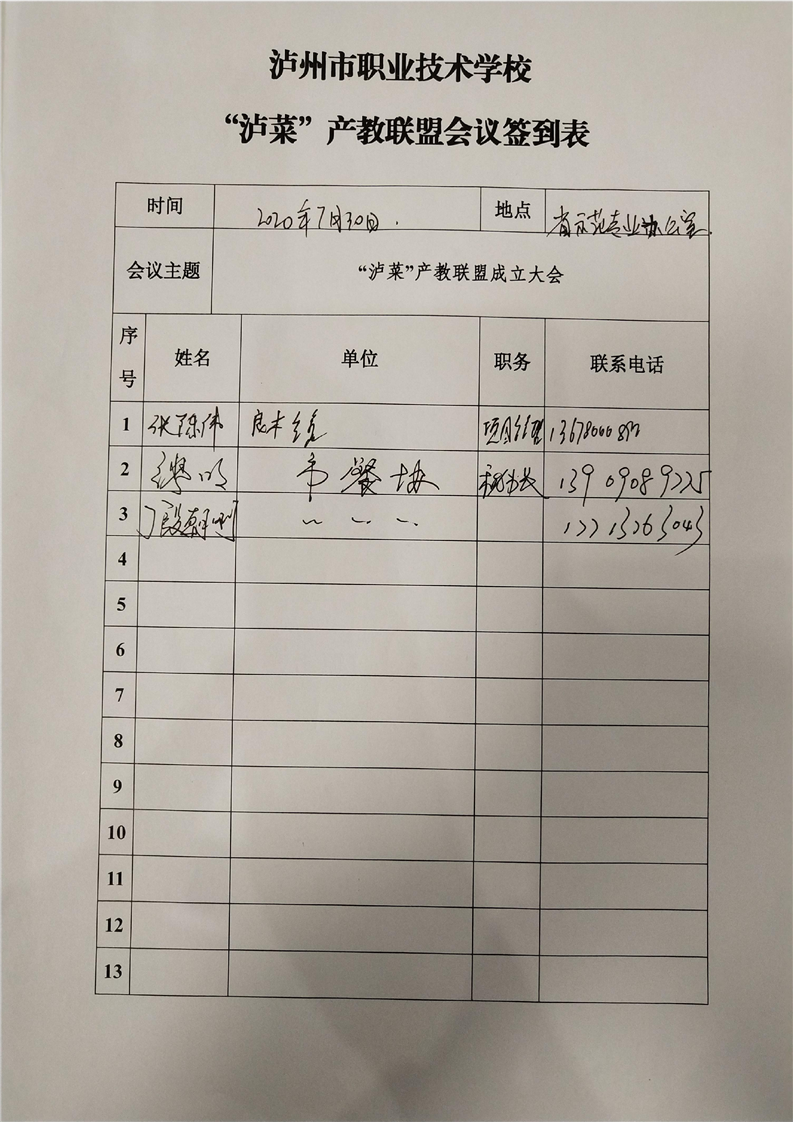 泸州市职业技术学校
“泸菜”产教联盟会议签到表
时间 2020年7月30日. 地点 省示范专业办公室.
会议主题 “泸菜”产教联盟成立大会
序号 姓名 单位 职务 联系电话
1 项目经理
2 市餐协 秘书长 13909089225
3
4
5
6
7
8
9
10
11
12
13